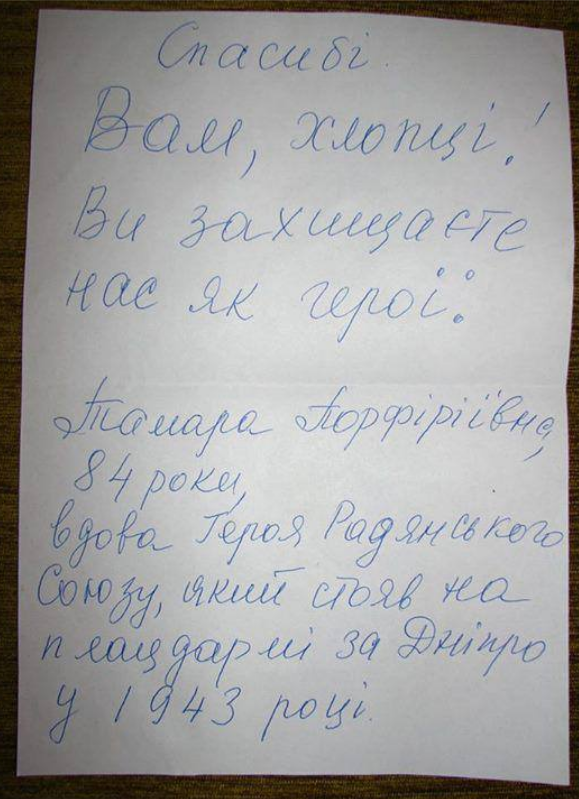 Спасибі
Вам, хлопці!
Ви захищаєте
нас як герої.
Тамара Порфіріївна,
84 роки,
вдова Героя Радянського
Союзу, який стояв на
плацдармі за Дніпро
у 1943 році.